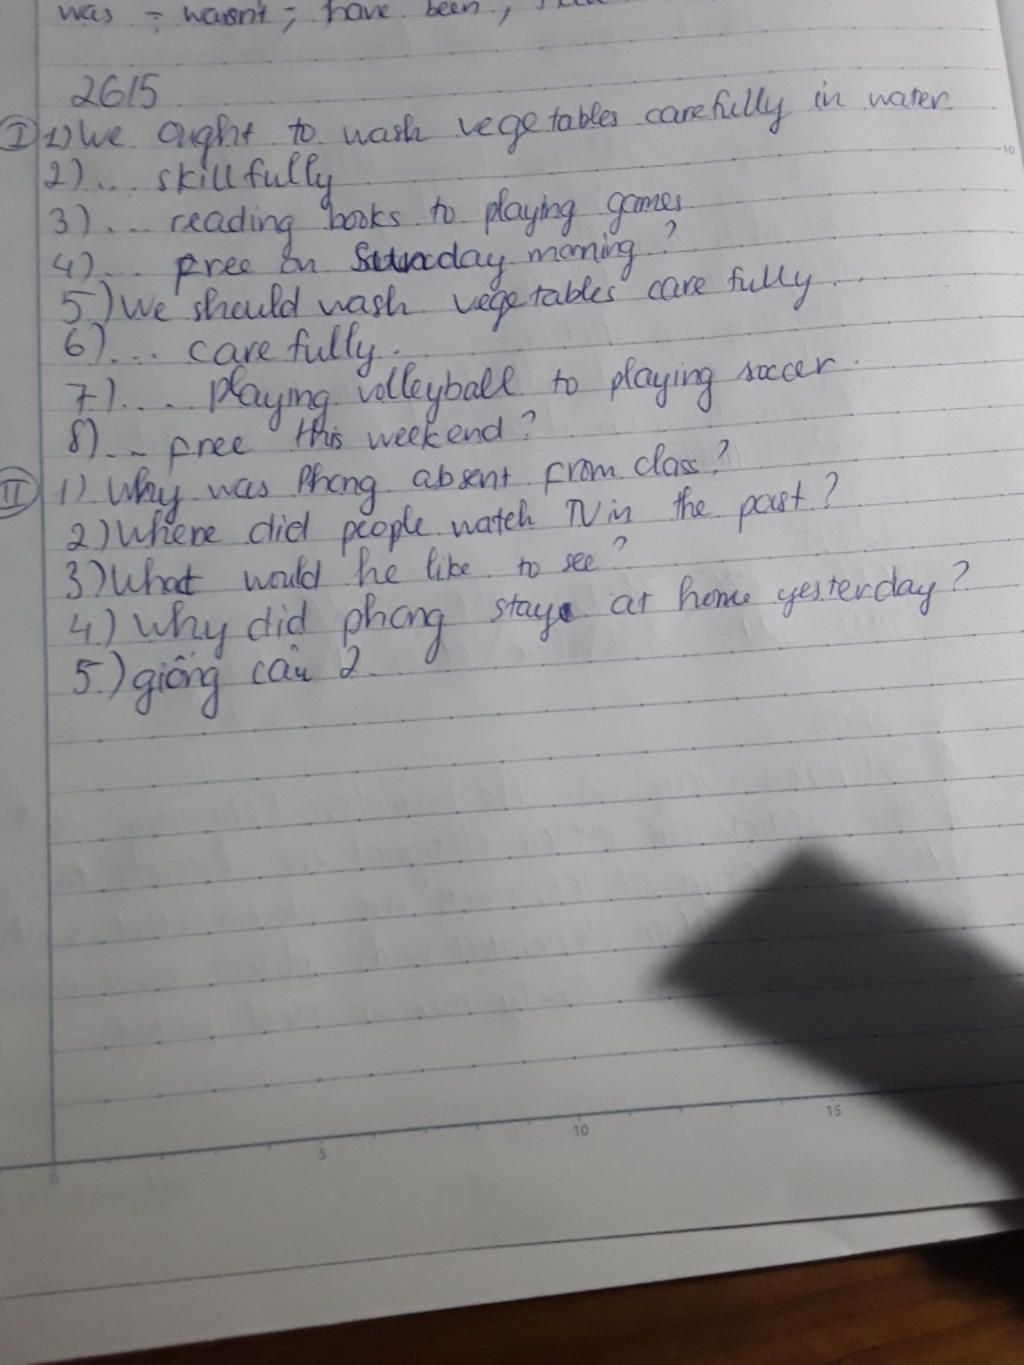 was - wasn't; have been,
2615
I 1) We ought to wash vegetables carefully in water
2) ... skillfully
3) ... reading books to playing games
4) ... free on Sunday morning?
5) We should wash vegetables carefully
6) ... carefully.
7) ... playing volleyball to playing soccer.
8) .. free this weekend?
II 1) Why was Phong absent from class?
2) Where did people watch TV in the past?
3) What would he like to see?
4.) Why did phong stay at home yesterday?
5.) giống câu 2
10
0
5
10
15